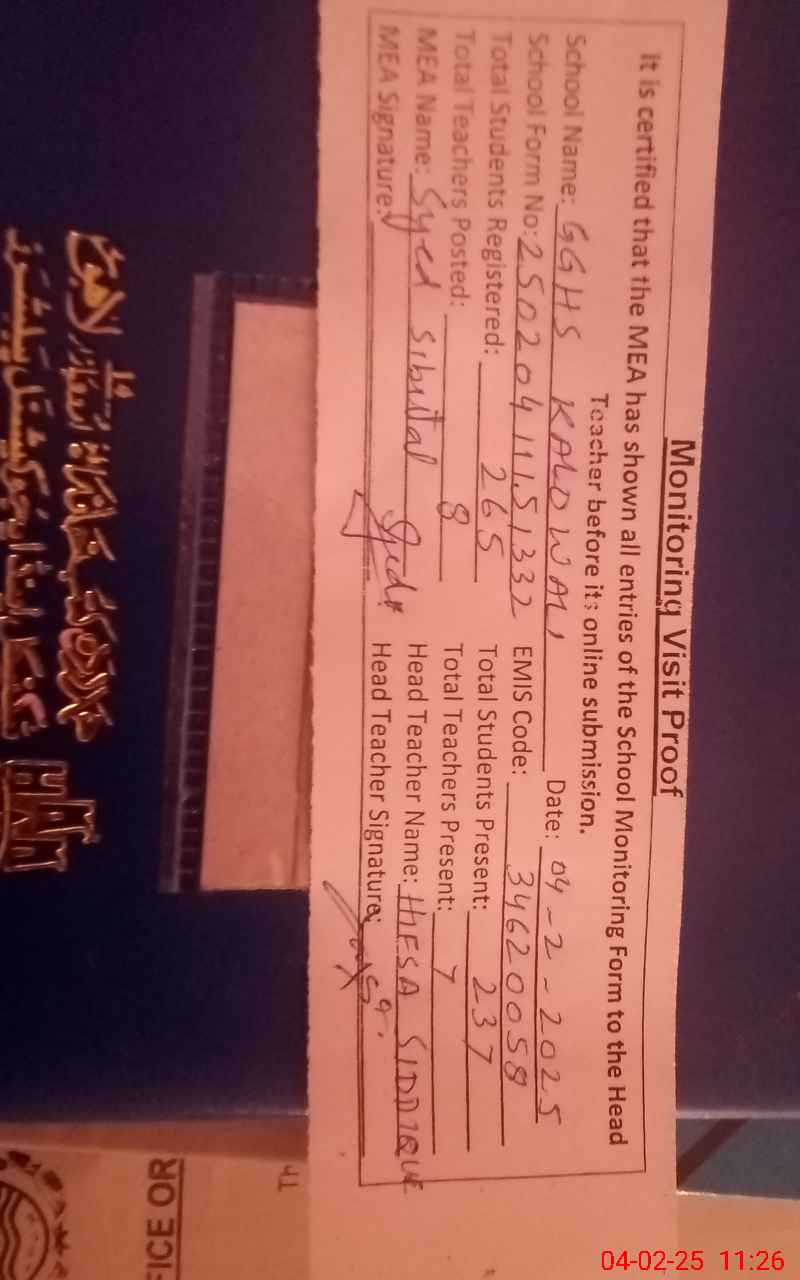 Monitoring Visit Proof
It is certified that the MEA has shown all entries of the School Monitoring Form to the Head
Teacher before its online submission.
School Name: GGHS KALOWAL Date: 04-2-2025
School Form No: 2502041151332 EMIS Code: 34620058
Total Students Registered: 265 Total Students Present: 237
Total Teachers Posted: 8 Total Teachers Present: 7
MEA Name: Syed Sibital Head Teacher Name: HIFSA SIDDIQUE
MEA Signature: Head Teacher Signature:
ICE OR
Th
04-02-25 11:26